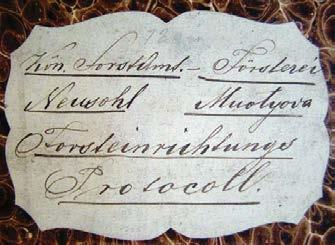 Kön. Forstamt. – Försterei
Neusohl Muotyova
Forsteinrichtungs
Protocoll.